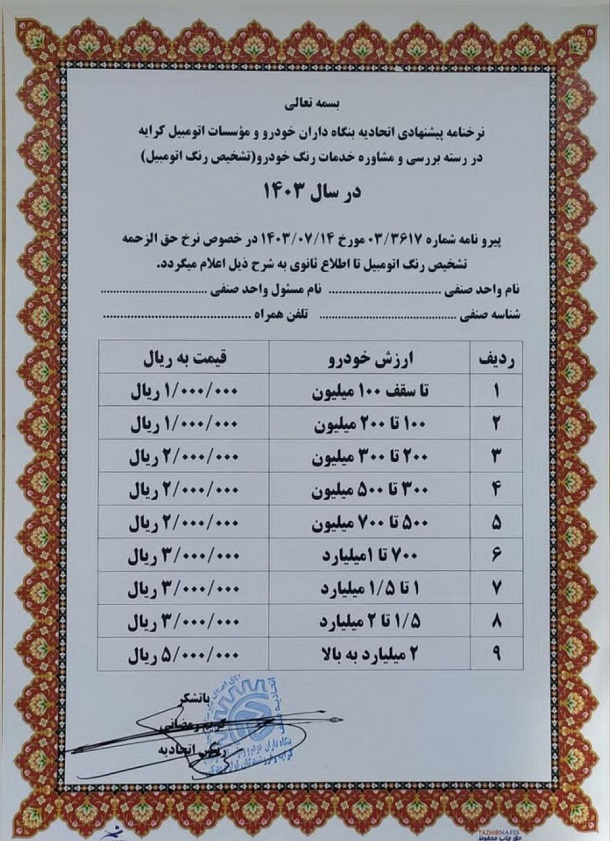 بسمه تعالی
نرخنامه پیشنهادی اتحادیه بنگاه داران خودرو و مؤسسات اتومبیل کرایه
در رسته بررسی و مشاوره خدمات رنگ خودرو(تشخیص رنگ اتومبیل)
در سال ۱۴۰۳
پیرو نامه شماره ۰۳/۳۶۱۷ مورخ ۱۴۰۳/۰۷/۱۴ در خصوص نرخ حق الزحمه
تشخیص رنگ اتومبیل تا اطلاع ثانوی به شرح ذیل اعلام میگردد.
نام واحد صنفی ................................ نام مسئول واحد صنفی ................................
شناسه صنفی ........................................ تلفن همراه ........................................
ردیف ارزش خودرو قیمت به ریال
۱ تا سقف ۱۰۰ میلیون ۱/۰۰۰/۰۰۰ ریال
۲ ۱۰۰ تا ۲۰۰ میلیون ۱/۰۰۰/۰۰۰ ریال
۳ ۲۰۰ تا ۳۰۰ میلیون ۲/۰۰۰/۰۰۰ ریال
۴ ۳۰۰ تا ۵۰۰ میلیون ۲/۰۰۰/۰۰۰ ریال
۵ ۵۰۰ تا ۷۰۰ میلیون ۲/۰۰۰/۰۰۰ ریال
۶ ۷۰۰ تا ۱میلیارد ۳/۰۰۰/۰۰۰ ریال
۷ ۱ تا ۱/۵ میلیارد ۳/۰۰۰/۰۰۰ ریال
۸ ۱/۵ تا ۲ میلیارد ۳/۰۰۰/۰۰۰ ریال
۹ ۲ میلیارد به بالا ۵/۰۰۰/۰۰۰ ریال
باتشکر
کریم رمضانی
رئیس اتحادیه
TAZHIBNAFIS
حق چاپ محفوظ